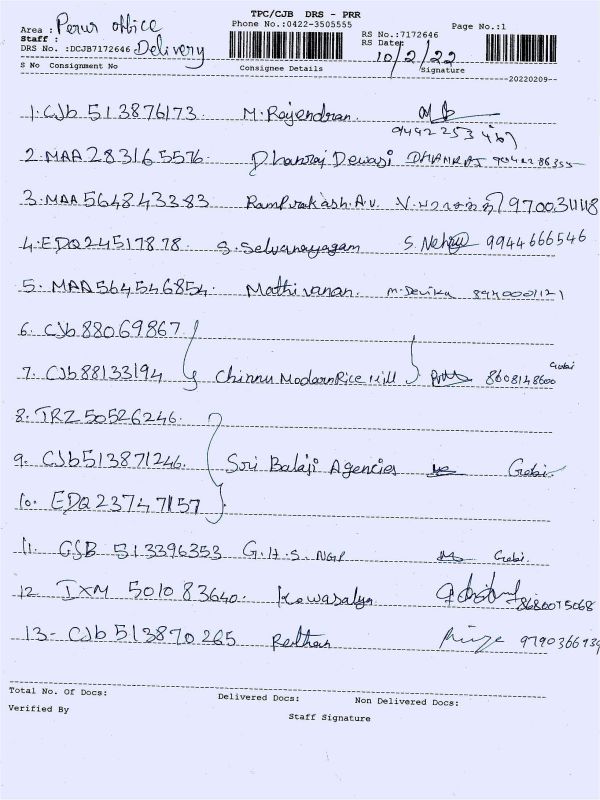 TPC/CJB DRS - PRR
Area : Perur office Phone No.:0422-3505555 Page No.:1
Staff : RS No.:7172646
DRS No. :DCJB7172646 Delivery RS Date: 10/2/22
S No Consignment No Consignee Details Signature
20220209--
1. CJb 513876173. M. Rajendran.
9442253467
2. MAA 283165576. Dhanraj Dewasi DHANRAJ
3. MAA 564843383 RamPrakash.A.V. 9700311118
4. EDQ 24517878. S. Selvanayagam S. Nehru 9944666546
5. MAA 564546854. Mathivanan. M. Devika 8940001121
6. CJb 88069867
7. CJb 88133194 Chinnu Modern Rice Mill 8608148600 Gobi
8. TRZ 50526246.
9. CJb 513871246. Sri Balaji Agencies Gobi
10. EDQ 23747157
11. GSB 513396353 G.H.S. NGP Gobi.
12. IXM 501083640. Kowasalya 8680075068
13- CJb 513870265 9790366139
Total No. Of Docs: Delivered Docs: Non Delivered Docs:
Verified By Staff Signature